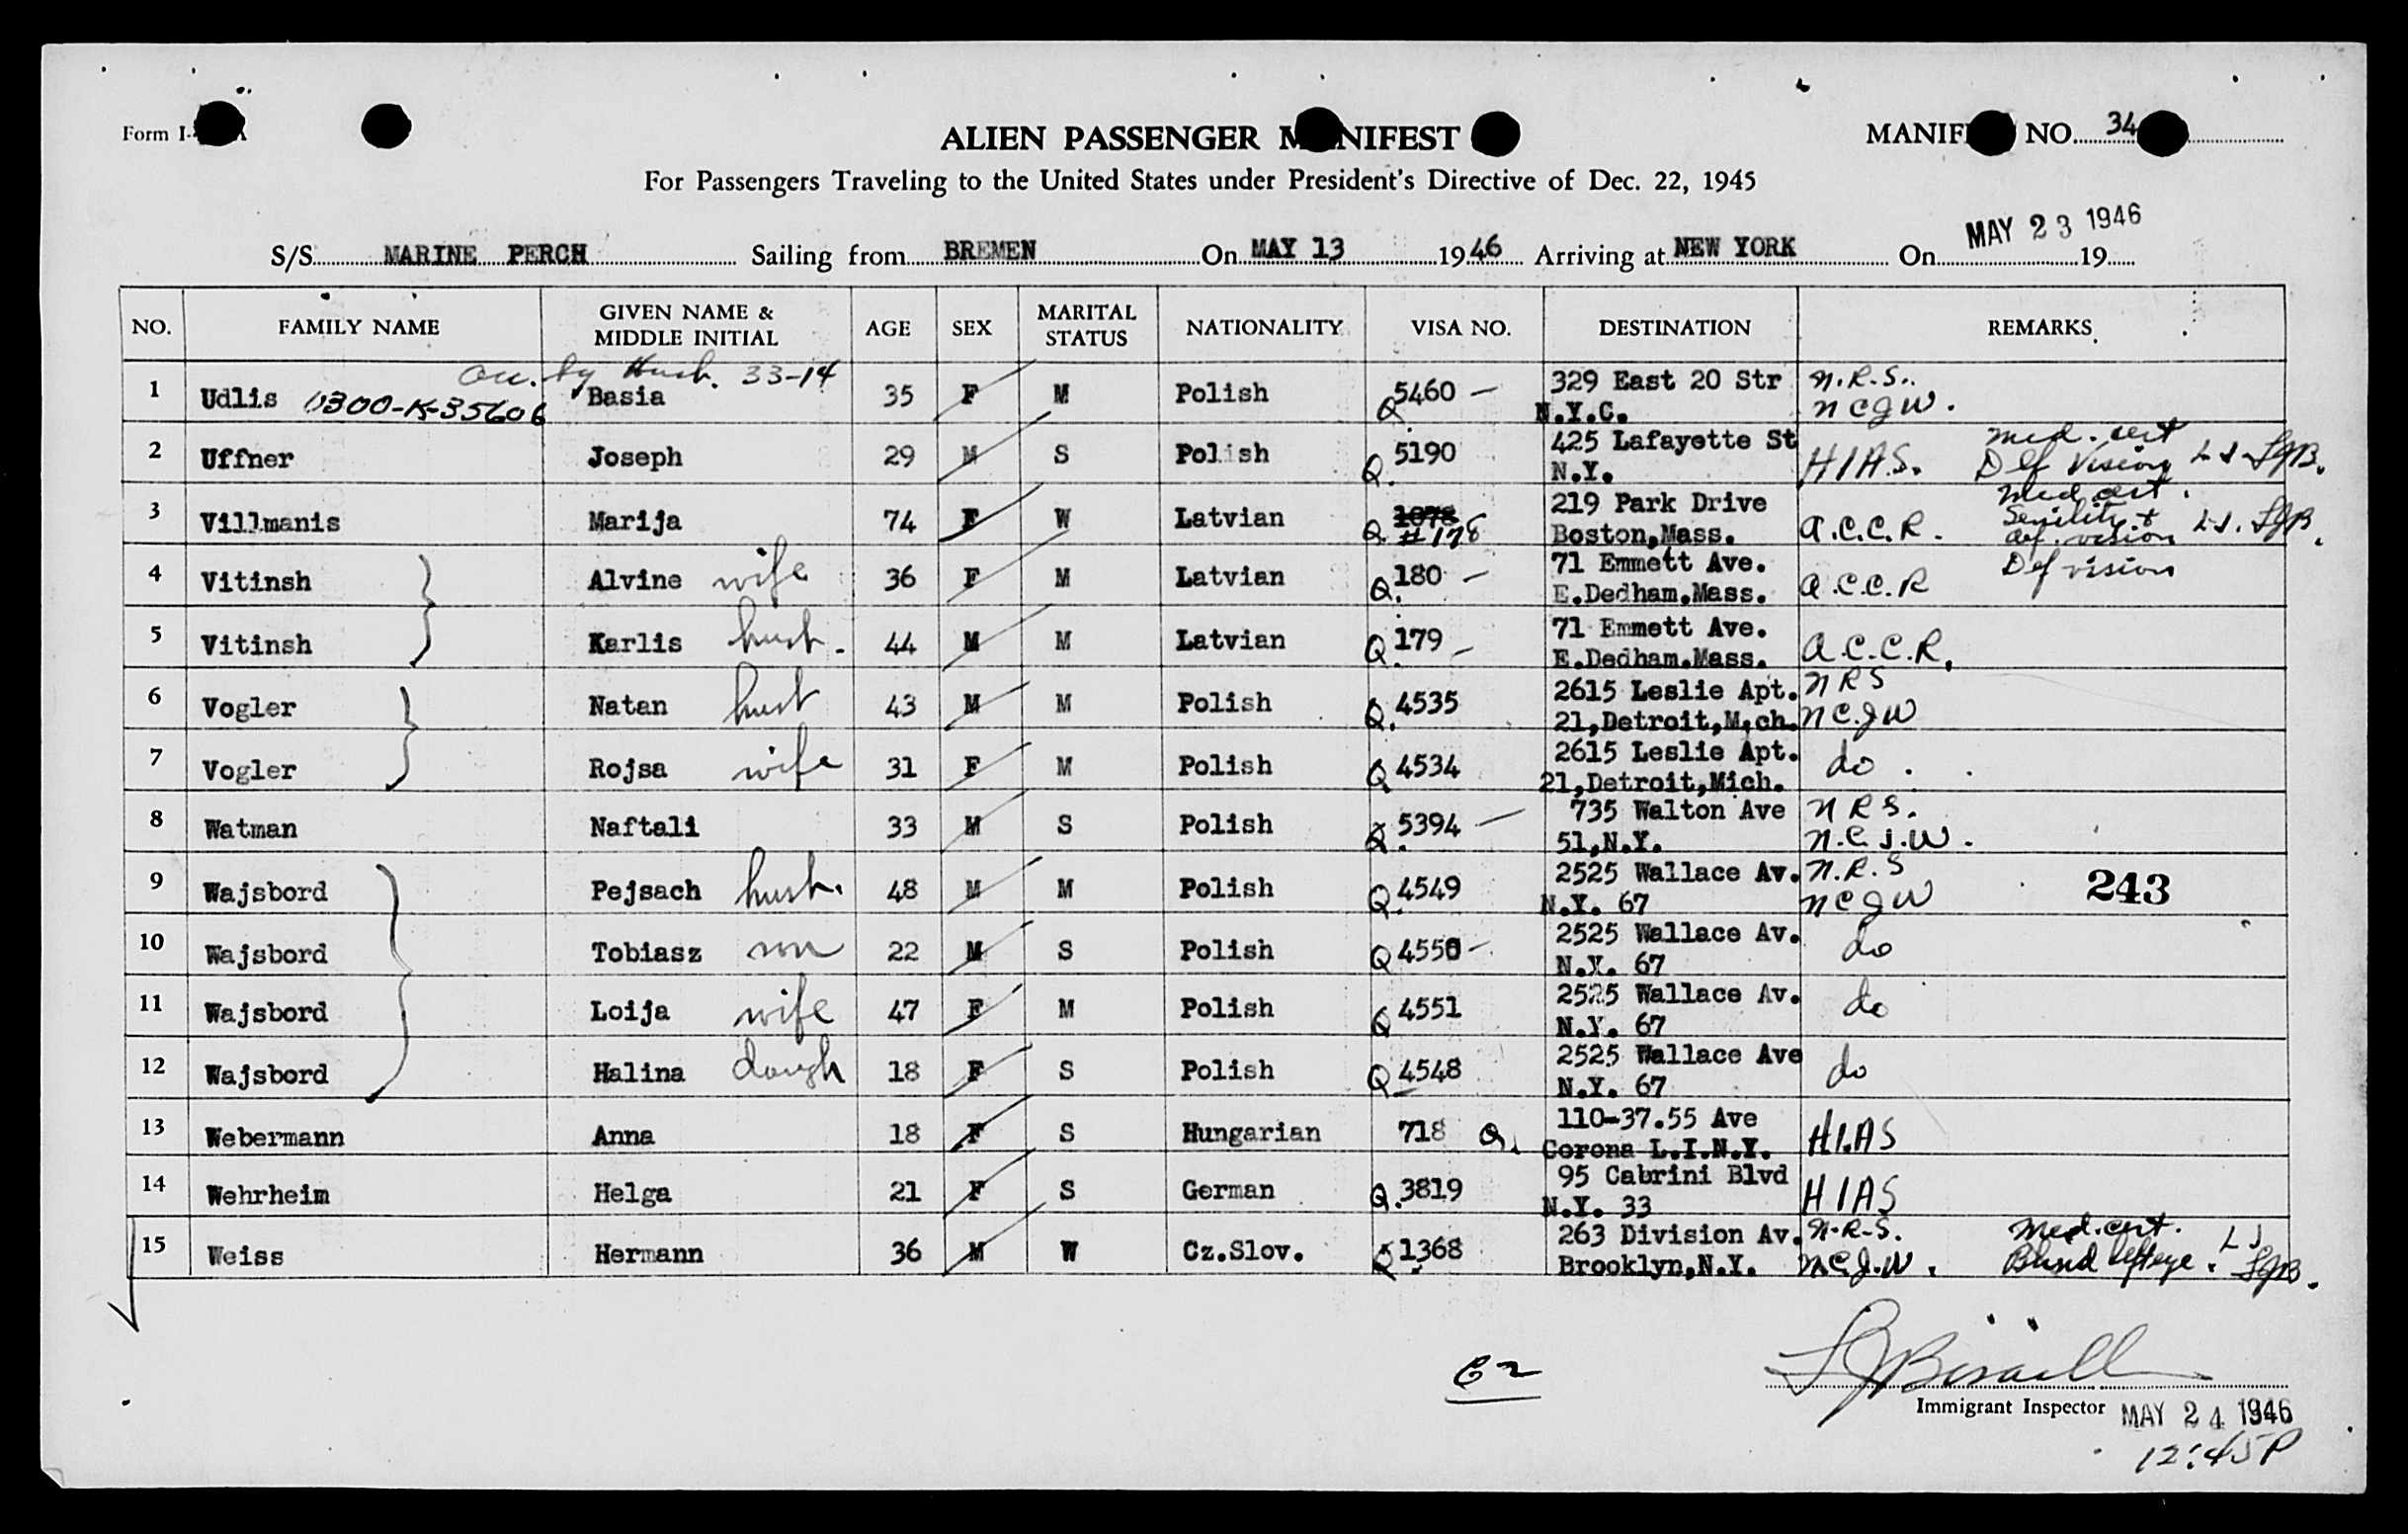 Form I-
ALIEN PASSENGER M NIFEST
MANIF NO. 34
For Passengers Traveling to the United States under President's Directive of Dec. 22, 1945
S/S MARINE PERCH Sailing from BREMEN On MAY 13 1946 Arriving at NEW YORK On MAY 23 1946 19
NO. FAMILY NAME GIVEN NAME & MIDDLE INITIAL AGE SEX MARITAL STATUS NATIONALITY VISA NO. DESTINATION REMARKS
by Husb. 33-14
1 Udlis 0300-K-35606 Basia 35 F M Polish Q 5460 — 329 East 20 Str N.R.S.
N.Y.C. NCJW.
2 Uffner Joseph 29 M S Polish Q. 5190 425 Lafayette St Med. cert
N.Y. HIAS. Def Vision LJ. LJB.
3 Villmanis Marija 74 F W Latvian 1078 219 Park Drive Med cert.
Q #178 Boston,Mass. A.C.C.R. Senility & def. vision LJ. LJB.
4 Vitinsh Alvine wife 36 F M Latvian Q. 180 — 71 Emmett Ave. Def vision
E.Dedham.Mass. A.C.C.R
5 Vitinsh Karlis husb. 44 M M Latvian Q. 179 — 71 Emmett Ave.
E.Dedham.Mass. A.C.C.R.
6 Vogler Natan husb 43 M M Polish Q. 4535 2615 Leslie Apt. NRS
21,Detroit,M.ch. NC.JW
7 Vogler Rojsa wife 31 F M Polish Q 4534 2615 Leslie Apt. do.
21,Detroit,Mich.
8 Watman Naftali 33 M S Polish Q. 5394 — 735 Walton Ave NRS.
51,N.Y. N.C.J.W.
9 Wajsbord Pejsach husb. 48 M M Polish Q. 4549 2525 Wallace Av. N.R.S 243
N.Y. 67 NCJW
10 Wajsbord Tobiasz son 22 M S Polish Q 4550 - 2525 Wallace Av. do
N.Y. 67
11 Wajsbord Loija wife 47 F M Polish Q 4551 2525 Wallace Av. do
N.Y. 67
12 Wajsbord Halina daugh 18 F S Polish Q 4548 2525 Wallace Ave do
N.Y. 67
13 Webermann Anna 18 F S Hungarian 718 Q. 110-37.55 Ave HIAS
Corona L.I.N.Y.
14 Wehrheim Helga 21 F S German Q. 3819 95 Cabrini Blvd HIAS
N.Y. 33
15 Weiss Hermann 36 M W Cz.Slov. Q 1368 263 Division Av. N.R.S. Med. cert. LJ
Brooklyn,N.Y. N.C.J.W. Blind left eye. LJB.
Immigrant Inspector MAY 24 1946
12:45P